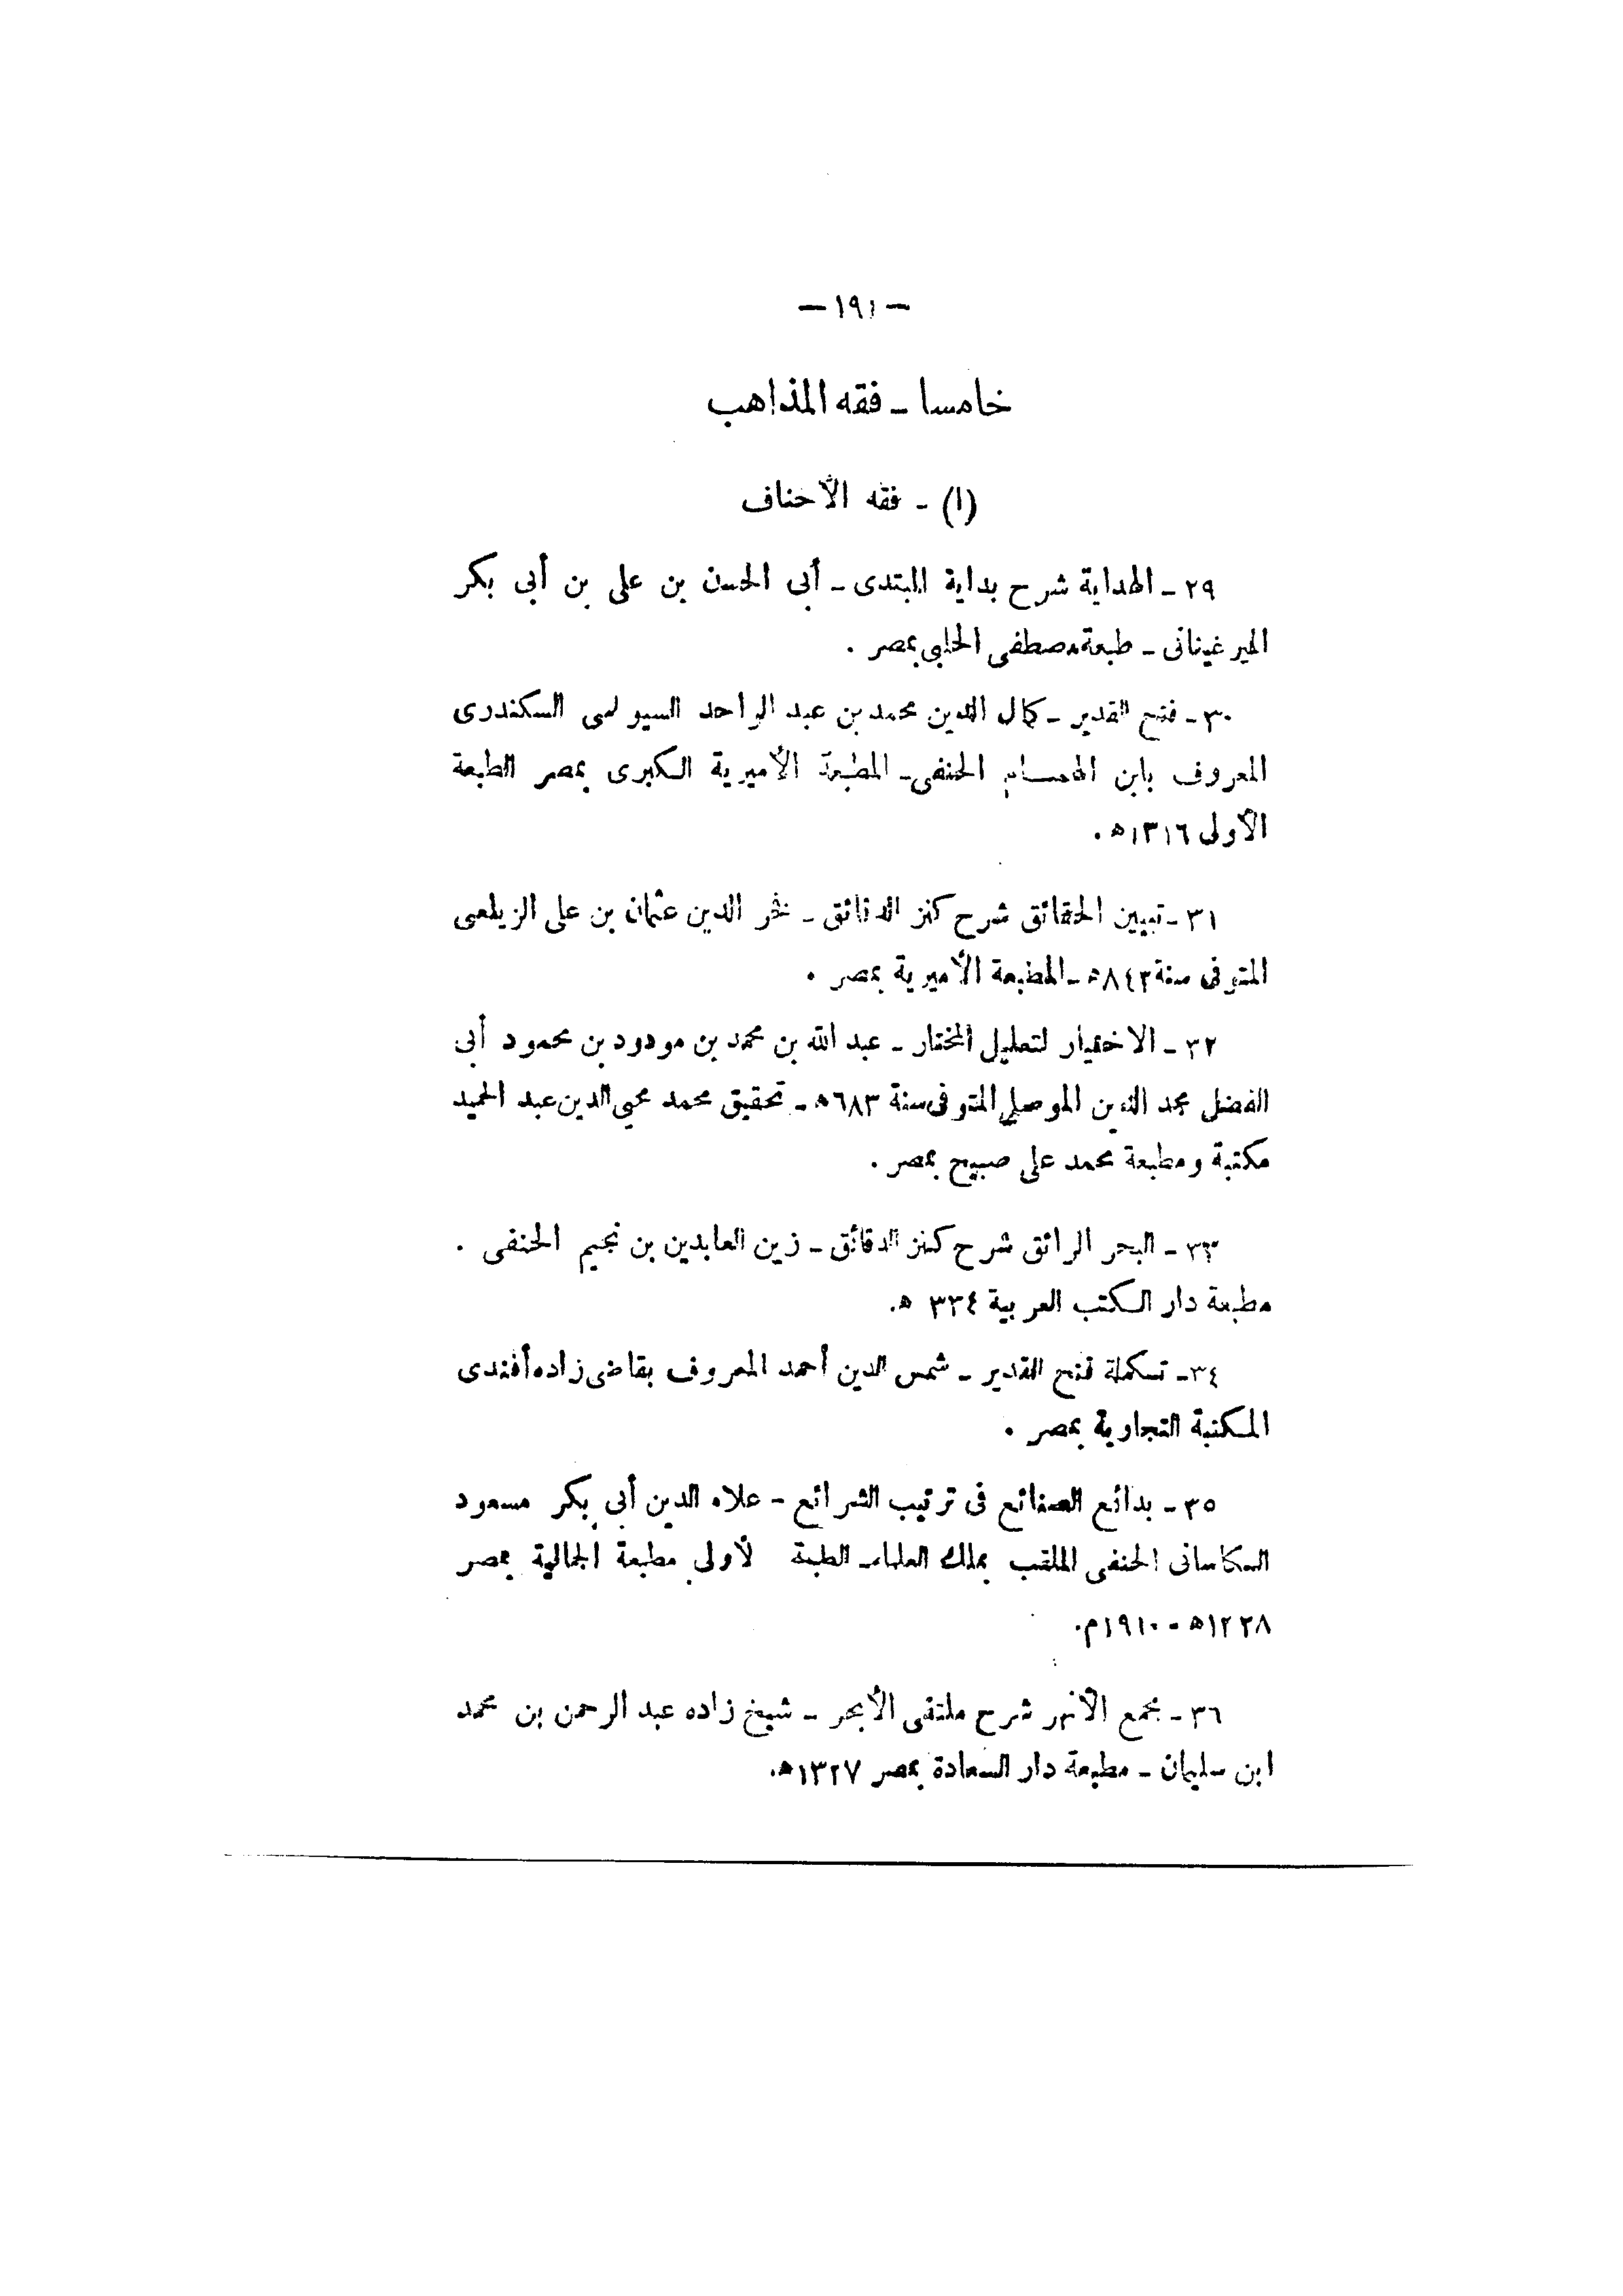 — ١٩١ —
خامسا ـ فقه المذاهب
(ا) ـ فقه الأحناف
٢٩ ـ الهداية شرح بداية المبتدى ـ أبى الحسن بن على بن أبى بكر
المير غينانى ـ طبعة مصطفى الحلبى بمصر .
٣٠ ـ فتح القدير ـ كمال الدين محمد بن عبد الواحد السيواسى السكندرى
المعروف بابن الهمام الحنفى ـ المطبعة الأميرية الكبرى بمصر الطبعة
الأولى ١٣١٦ه .
٣١ ـ تبيين الحقائق شرح كنز الدقائق ـ فخر الدين عثمان بن على الزيلعى
المتوفى سنة ٨٤٣ه ـ المطبعة الأميرية بمصر .
٣٢ ـ الاختيار لتعليل المختار ـ عبد الله بن محمد بن مودود بن محمود أبى
الفضل مجد الدين الموصلى المتوفى سنة ٦٨٣ه ـ تحقيق محمد محيى الدين عبد الحميد
مكتبة ومطبعة محمد على صبيح بمصر .
٣٣ ـ البحر الرائق شرح كنز الدقائق ـ زين العابدين بن نجيم الحنفى .
مطبعة دار الكتب العربية ٣٣٤ ه.
٣٤ ـ تكملة فتح القدير ـ شمس الدين أحمد المعروف بقاضى زاده أفندى
المكتبة التجارية بمصر .
٣٥ ـ بدائع الصنائع فى ترتيب الشرائع ـ علاء الدين أبى بكر مسعود
الكاسانى الحنفى الملقب بملك العلماء ـ الطبعة لأولى مطبعة الجمالية بمصر
١٢٢٨ه - ١٩١٠م.
٣٦ ـ مجمع الأنهر شرح ملتقى الأبحر ـ شيخ زاده عبد الرحمن بن محمد
ابن سليمان ـ مطبعة دار السعادة بمصر ١٣٢٧ه.